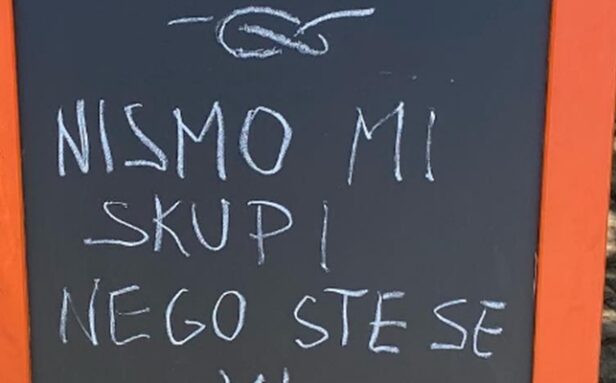 NISMO MI
SKUPI
NEGO STE SE